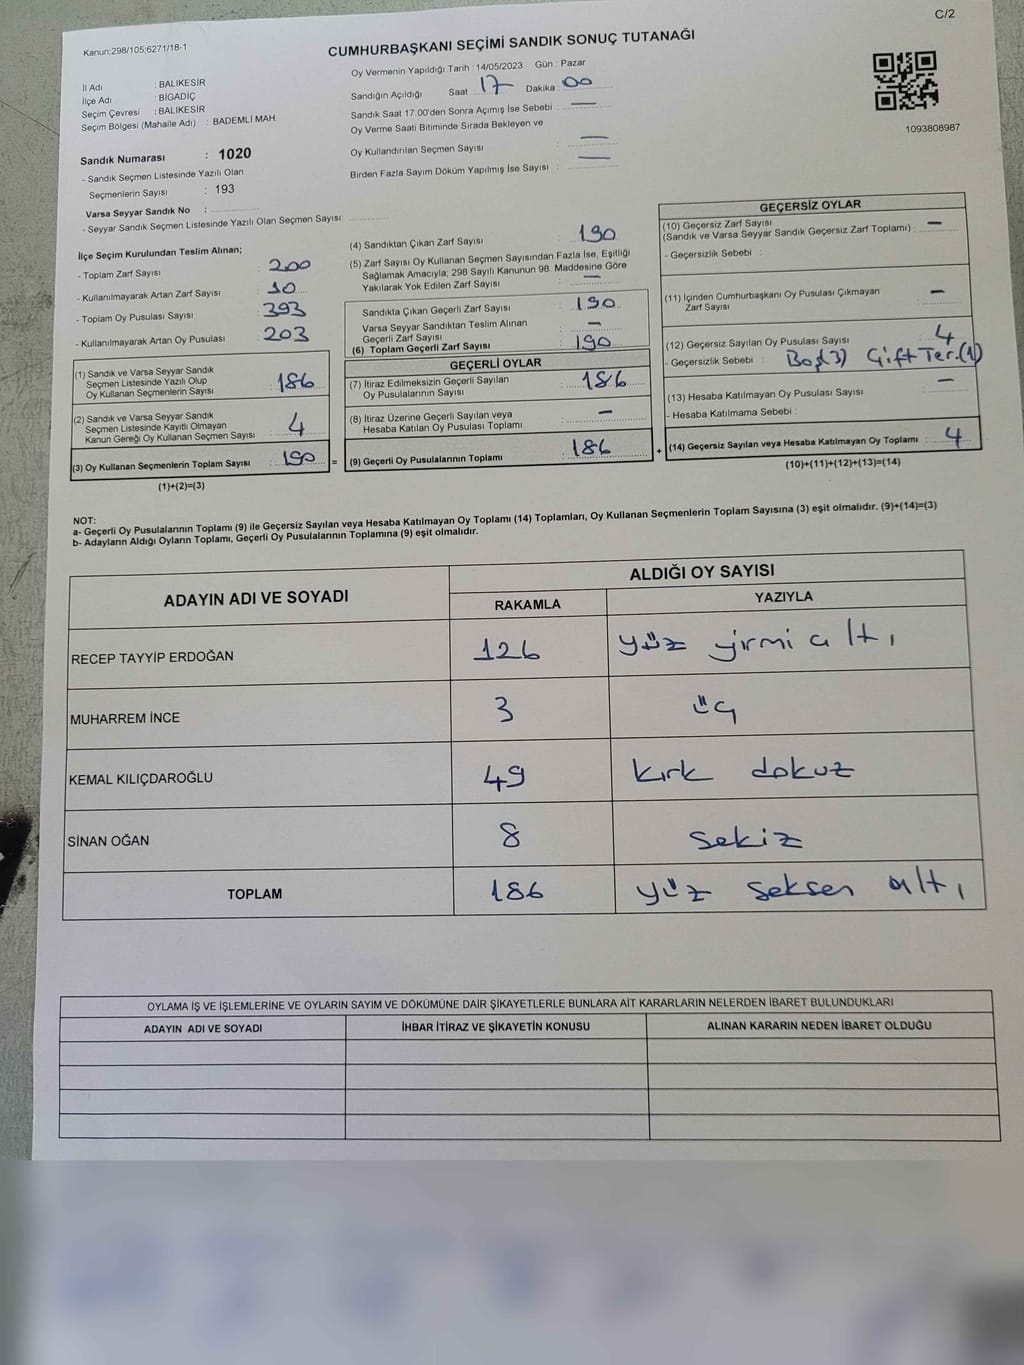 C/2
Kanun:298/105;6271/18-1
CUMHURBAŞKANI SEÇİMİ SANDIK SONUÇ TUTANAĞI
İl Adı : BALIKESİR
İlçe Adı : BİGADİÇ
Seçim Çevresi : BALIKESİR
Seçim Bölgesi (Mahalle Adı) : BADEMLİ MAH.
Sandık Numarası : 1020
- Sandık Seçmen Listesinde Yazılı Olan
Seçmenlerin Sayısı : 193
Varsa Seyyar Sandık No :
- Seyyar Sandık Seçmen Listesinde Yazılı Olan Seçmen Sayısı:
Oy Vermenin Yapıldığı Tarih : 14/05/2023 Gün : Pazar
Sandığın Açıldığı Saat : 17 Dakika : 00
Sandık Saat 17.00'den Sonra Açımış İse Sebebi : —
Oy Verme Saati Bitiminde Sırada Bekleyen ve
Oy Kullandırılan Seçmen Sayısı : —
Birden Fazla Sayım Döküm Yapılmış İse Sayısı : —
1093808987
İlçe Seçim Kurulundan Teslim Alınan;
- Toplam Zarf Sayısı : 200
- Kullanılmayarak Artan Zarf Sayısı : 10
- Toplam Oy Pusulası Sayısı : 393
- Kullanılmayarak Artan Oy Pusulası : 203
(1) Sandık ve Varsa Seyyar Sandık
Seçmen Listesinde Yazılı Olup
Oy Kullanan Seçmenlerin Sayısı : 186
(2) Sandık ve Varsa Seyyar Sandık
Seçmen Listesinde Kayıtlı Olmayan
Kanun Gereği Oy Kullanan Seçmen Sayısı : 4
(3) Oy Kullanan Seçmenlerin Toplam Sayısı : 190 =
(1)+(2)=(3)
(4) Sandıktan Çıkan Zarf Sayısı : 190
(5) Zarf Sayısı Oy Kullanan Seçmen Sayısından Fazla İse, Eşitliği
Sağlamak Amacıyla; 298 Sayılı Kanunun 98. Maddesine Göre
Yakılarak Yok Edilen Zarf Sayısı : —
Sandıkta Çıkan Geçerli Zarf Sayısı : 190
Varsa Seyyar Sandıktan Teslim Alınan
Geçerli Zarf Sayısı : —
(6) Toplam Geçerli Zarf Sayısı : 190
GEÇERLİ OYLAR
(7) İtiraz Edilmeksizin Geçerli Sayılan
Oy Pusulalarının Sayısı : 186
(8) İtiraz Üzerine Geçerli Sayılan veya
Hesaba Katılan Oy Pusulası Toplamı : —
(9) Geçerli Oy Pusulalarının Toplamı : 186 +
GEÇERSİZ OYLAR
(10) Geçersiz Zarf Sayısı
(Sandık ve Varsa Seyyar Sandık Geçersiz Zarf Toplamı) : —
- Geçersizlik Sebebi :
(11) İçinden Cumhurbaşkanı Oy Pusulası Çıkmayan
Zarf Sayısı : —
(12) Geçersiz Sayılan Oy Pusulası Sayısı : 4
- Geçersizlik Sebebi : Boş(3) Çift Ter.(1)
(13) Hesaba Katılmayan Oy Pusulası Sayısı : —
- Hesaba Katılmama Sebebi :
(14) Geçersiz Sayılan veya Hesaba Katılmayan Oy Toplamı : 4
(10)+(11)+(12)+(13)=(14)
NOT:
a- Geçerli Oy Pusulalarının Toplamı (9) ile Geçersiz Sayılan veya Hesaba Katılmayan Oy Toplamı (14) Toplamları, Oy Kullanan Seçmenlerin Toplam Sayısına (3) eşit olmalıdır. (9)+(14)=(3)
b- Adayların Aldığı Oyların Toplamı, Geçerli Oy Pusulalarının Toplamına (9) eşit olmalıdır.
ADAYIN ADI VE SOYADI ALDIĞI OY SAYISI
RAKAMLA YAZIYLA
RECEP TAYYİP ERDOĞAN 126 yüz yirmi altı
MUHARREM İNCE 3 üç
KEMAL KILIÇDAROĞLU 49 kırk dokuz
SİNAN OĞAN 8 sekiz
TOPLAM 186 yüz seksen altı
OYLAMA İŞ VE İŞLEMLERİNE VE OYLARIN SAYIM VE DÖKÜMÜNE DAİR ŞİKAYETLERLE BUNLARA AİT KARARLARIN NELERDEN İBARET BULUNDUKLARI
ADAYIN ADI VE SOYADI İHBAR İTİRAZ VE ŞİKAYETİN KONUSU ALINAN KARARIN NEDEN İBARET OLDUĞU